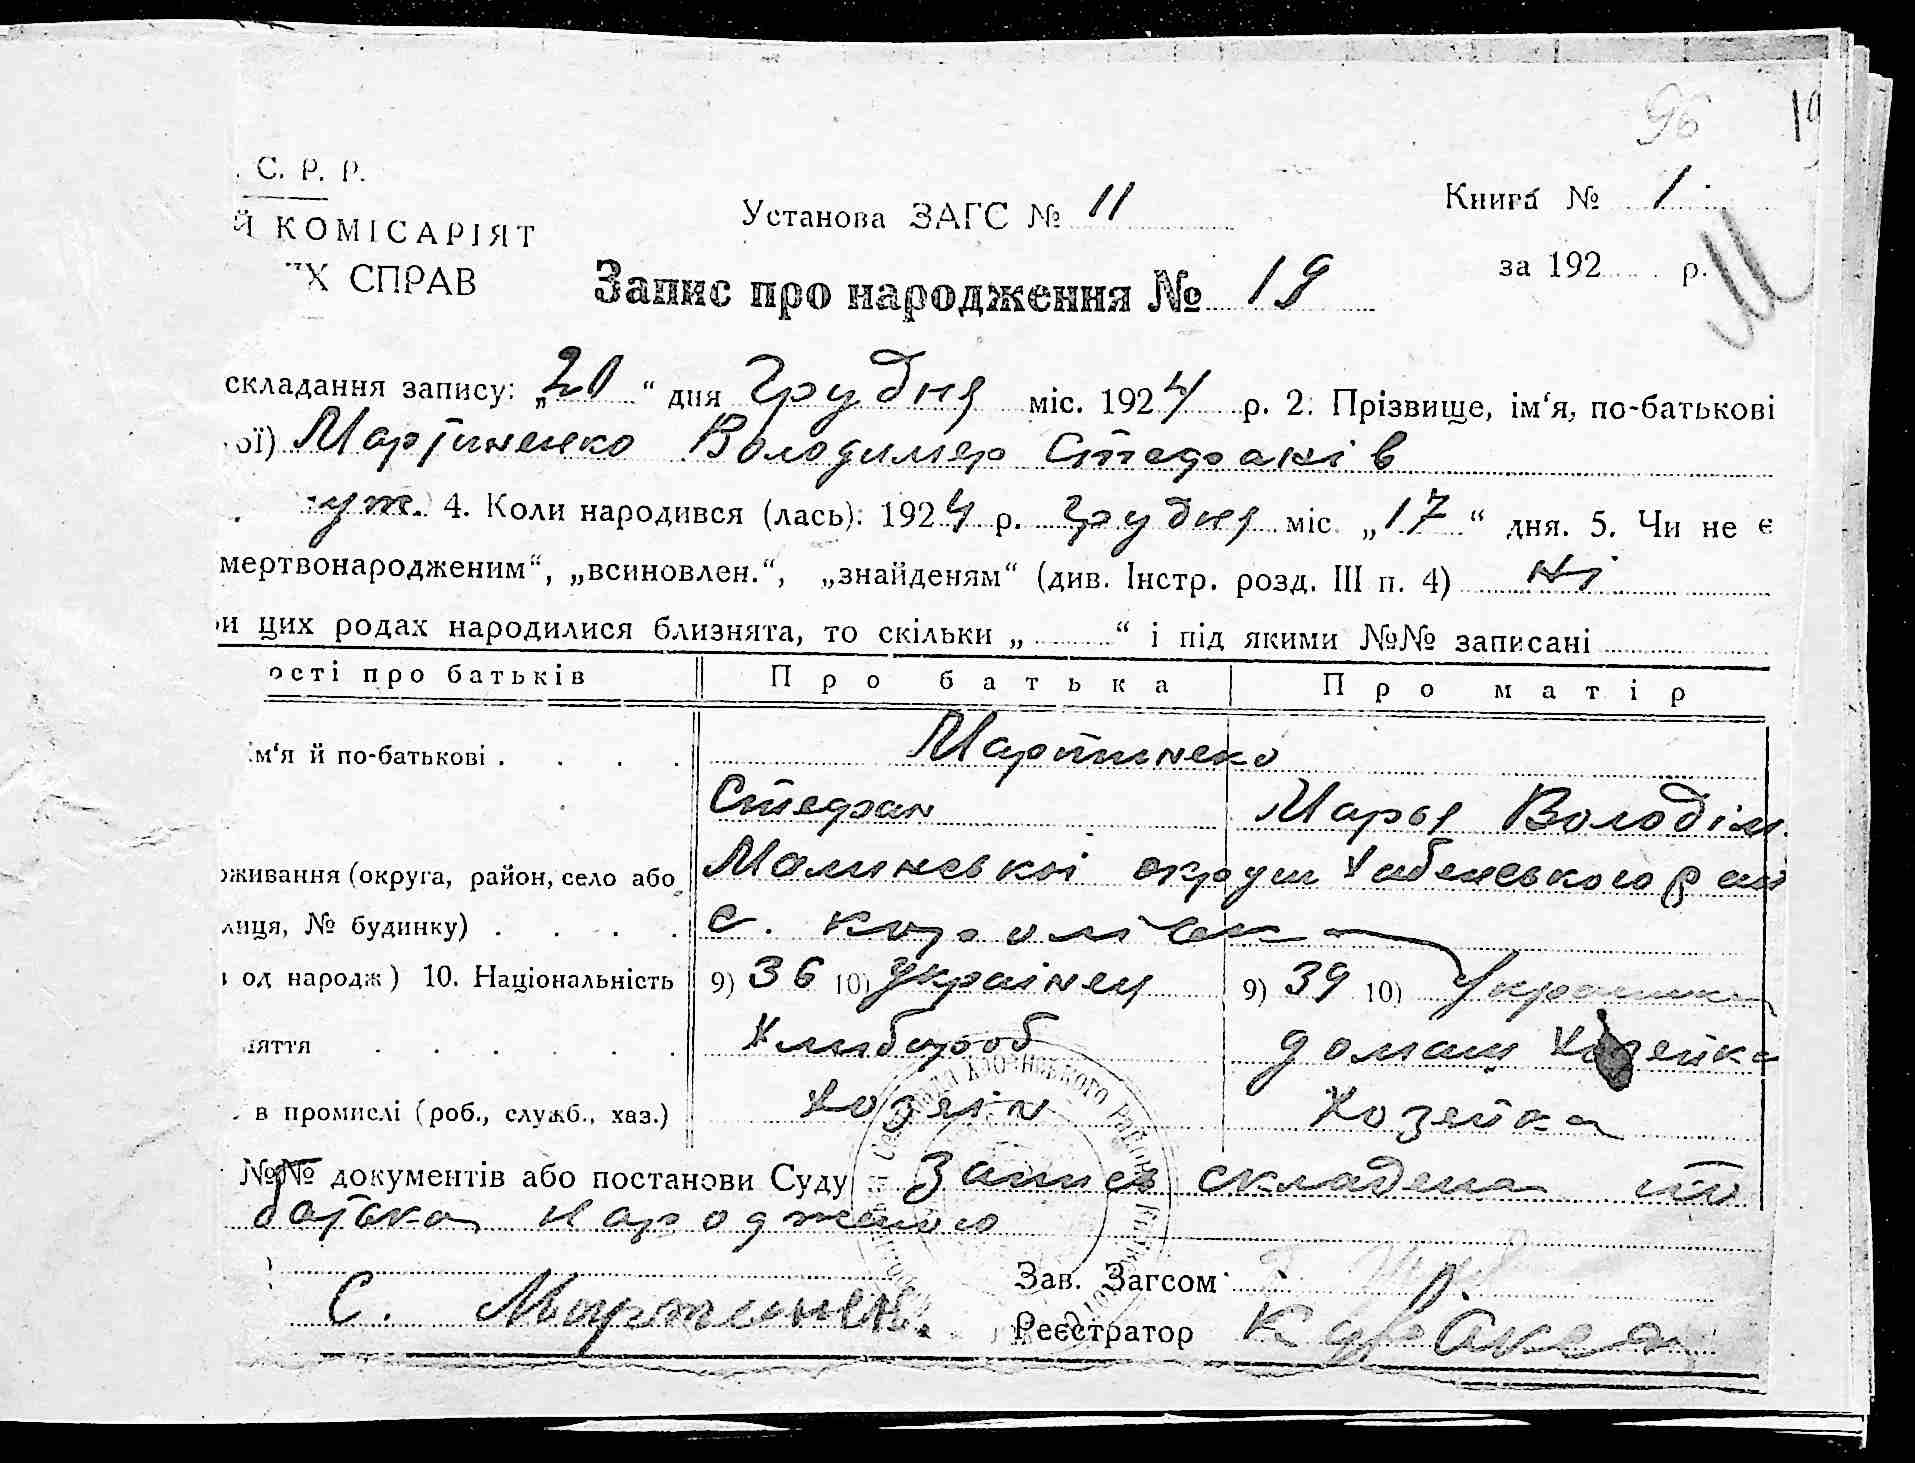 96 19
. С. Р. Р.
Й КОМІСАРІЯТ
ИХ СПРАВ
Установа ЗАГС № 11
Книга № 1
за 192 р.
Запис про народження № 19
складання запису: „20“ дня Грудня міс. 1924 р. 2. Прізвище, ім‘я, по-батькові
ої) Мартиненко Володимер Стефанів
уж. 4. Коли народився (лась): 1924 р. Грудня міс. „17“ дня. 5. Чи не є
мертвонародженим“, „всиновлен.“, „знайденям“ (див. Інстр. розд. III п. 4) Ні
ри цих родах народилися близнята, то скільки „ “ і під якими №№ записані
ості про батьків Про батька Про матір
ім‘я й по-батькові . . . . Мартиненко
Стефан Марья Володім
оживання (округа, район, село або Малинської округи Хабенського рай
лиця, № будинку) . . . . с.
од народж) 10. Національність 9) 36 10) Українец 9) 39 10) Українка
няття . . . . . . Хлибороб домаш Хозейка
. в промислі (роб., служб., хаз.) Хозяін Хозейка
№№ документів або постанови Суду Запись складена
батька народженого
Зав. Загсом
С. Мартинен.
Реєстратор